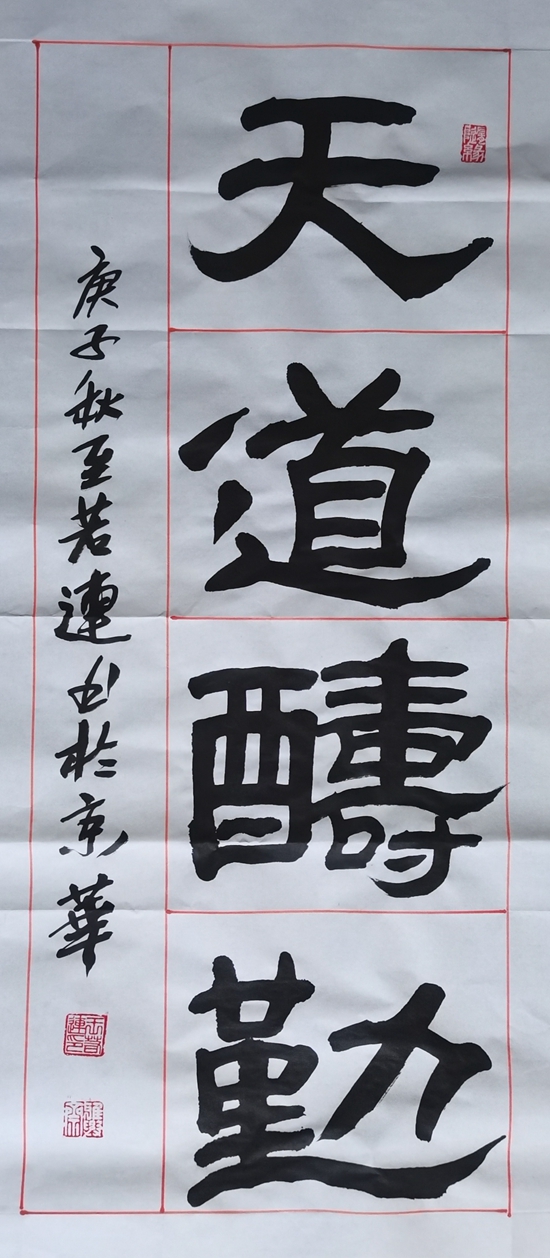 天道醻勤
庚子秋至若連书於京華